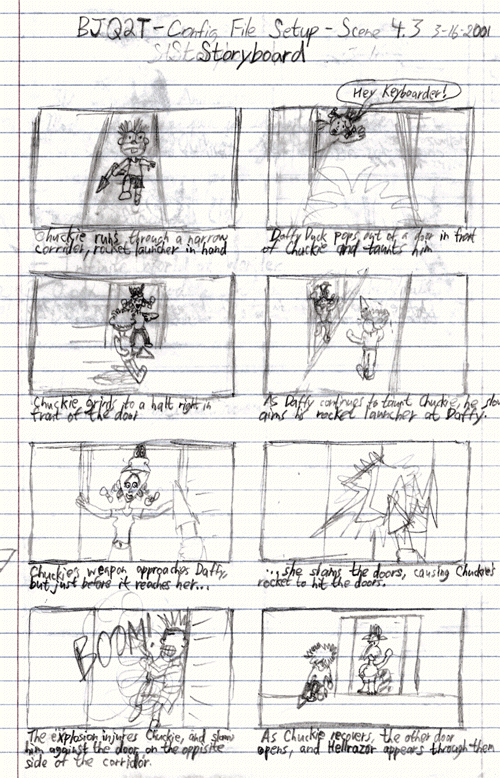 BJQ2T - Config File Setup - Scene 4.3 3-16-2001
Storyboard
Hey Keyboarder!
Chuckie runs through a narrow
corridor, rocket launcher in hand
Daffy Duck pops out of a door in front
of Chuckie and taunts him
Chuckie grinds to a halt right in
front of the door
As Daffy continues to taunt Chuckie, he slow
aims his rocket launcher at Daffy.
Chuckie's weapon approaches Daffy,
but just before it reaches her...
...she slams the doors, causing Chuckie's
rocket to hit the doors.
BOOM!
The explosion injures Chuckie, and slams
him against the door on the opposite
side of the corridor.
As Chuckie recovers, the other door
opens, and Hellrazor appears through them